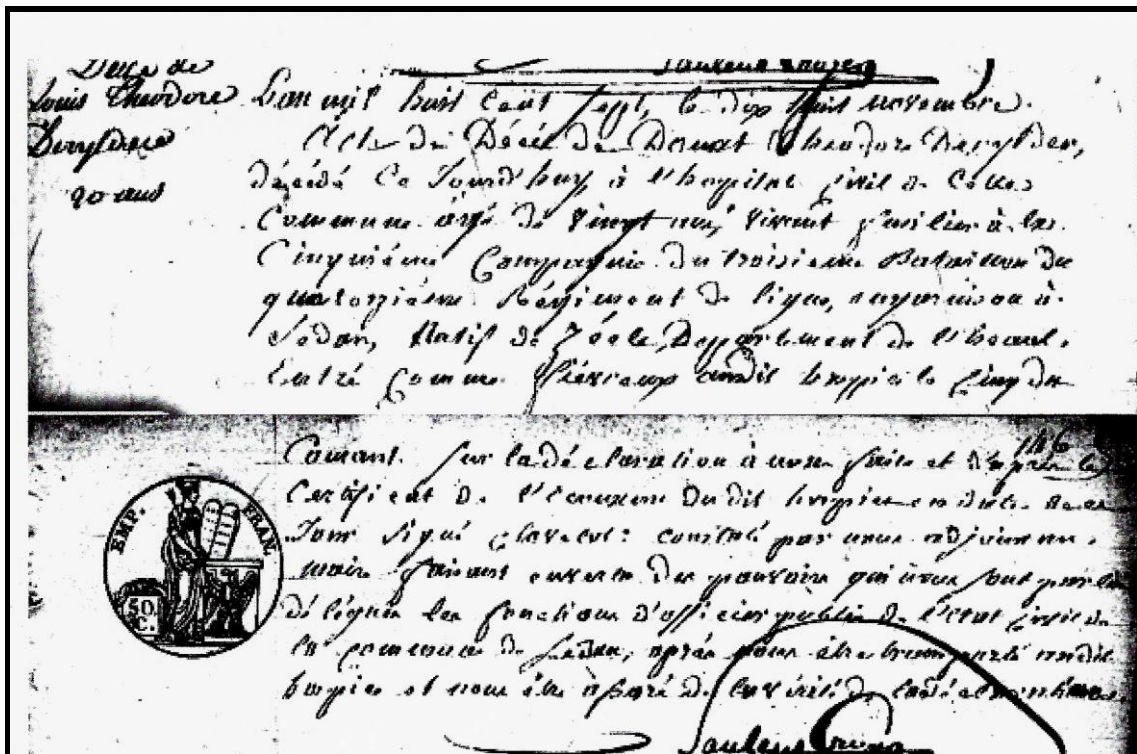 Décès de
Louis Theodore
Deryckere
20 ans
L'an mil huit cent sept, le dix huit novembre.
Acte de Décès de Donat Theodore Derycker,
décédé ce Jourd'huy, à l'hopital civil de cette
Commune âgé de vingt ans, vivant fusilier à la
Cinquième Compagnie du troisième Bataillon du
quatorzième Régiment de ligne, en garnison à
Sedan, Natif de Département de l'Escaut.
Entré Comme fiévreux audit hospice le Cinq du
146
Courant. Sur la déclaration à nous faite et d'après le
Certificat de l'Econome du dit hospice en date de ce
Jour signé constaté par nous adjoint au
maire faisant en vertu des pouvoirs qui nous sont par lui
délégués les fonctions d'officier public de l'état civil de
la commune de Sedan, après nous être transporté audit
hospice et nous être assuré de la vérité de la déclaration.
EMP. FRAN.
50 C.